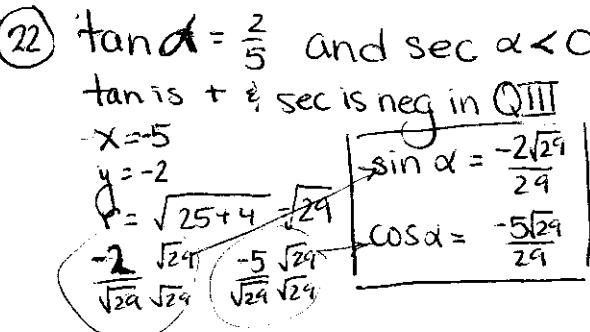 22 tan α = 2/5 and sec α < 0
tan is + & sec is neg in QIII
x = -5
y = -2
r = √25+4 = √29
-2/√29 √29/√29 -5/√29 √29/√29
sin α = -2√29/29
cos α = -5√29/29